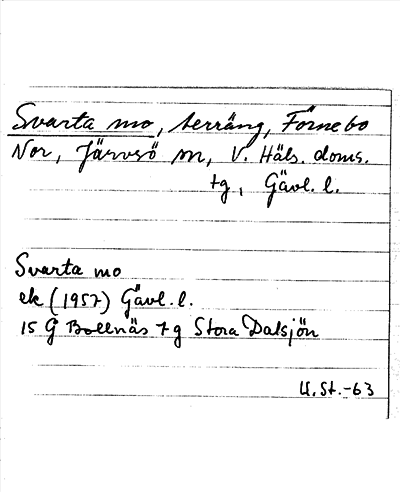 Svarta mo, terräng, Förnebo
Nor, Järvsö sn, V. Häls. doms.
tg, Gävl. l.
Svarta mo
ek (1957) Gävl. l.
15 G Bollnäs tg Stora Dalsjön
U.St.-63